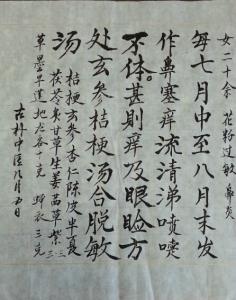 女二十余 花粉过敏 鼻炎
每七月中至八月末发
作鼻塞痒流清涕喷嚏
不休甚则痒及眼睑方
处玄参桔梗汤合脱敏
汤 桔梗玄参杏仁陈皮半夏
茯苓炙甘草生姜茜草紫
草旱莲 地龙各十克 蝉衣三克
古朴中医八月五日